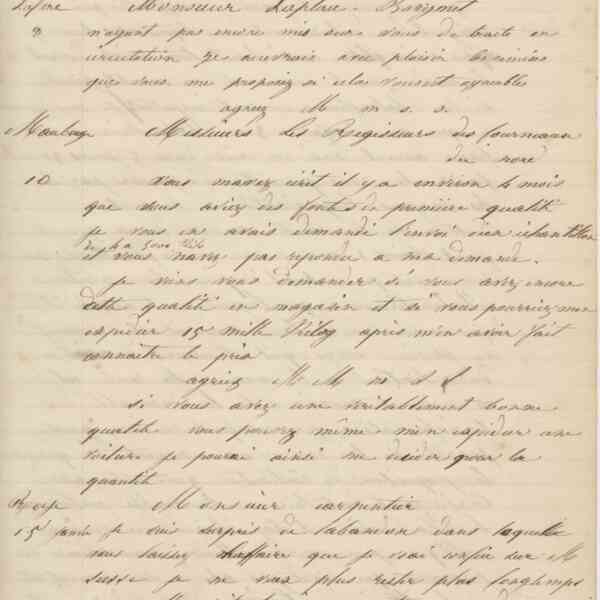 Lafère Monsieur
9 n'ayant pas encore mis sur vous de traite en
circulation je recevrais avec plaisir les
que vous me proposez si elles seront
agreez M m s s.
Maubeuge Messieurs les Regisseurs des fourneaux
du nord
10 vous mavez écrit il y a environ 4 mois
que vous aviez des fontes de première qualité
je vous en avais demandé l'envoi d'en échantillon
de 4 a 5000
et vous navez pas repondu a ma demande.
je viens vous demander si vous avez encore
cette qualité en magasin et si vous pourriez men
expedier 15 mille après m'en avoir fait
connaitre le prix
agreez M M m s s
si vous avez une veritablement bonne
qualité vous pouvez même m'en expedier une
voiture je pourai ainsi me decider pour la
quantité
Monsieur carpentier
15 je suis surpris de labandon dans laquelle
vous laissez laffaire que je vous confié sur M
je ne veux plus rester plus longtemps